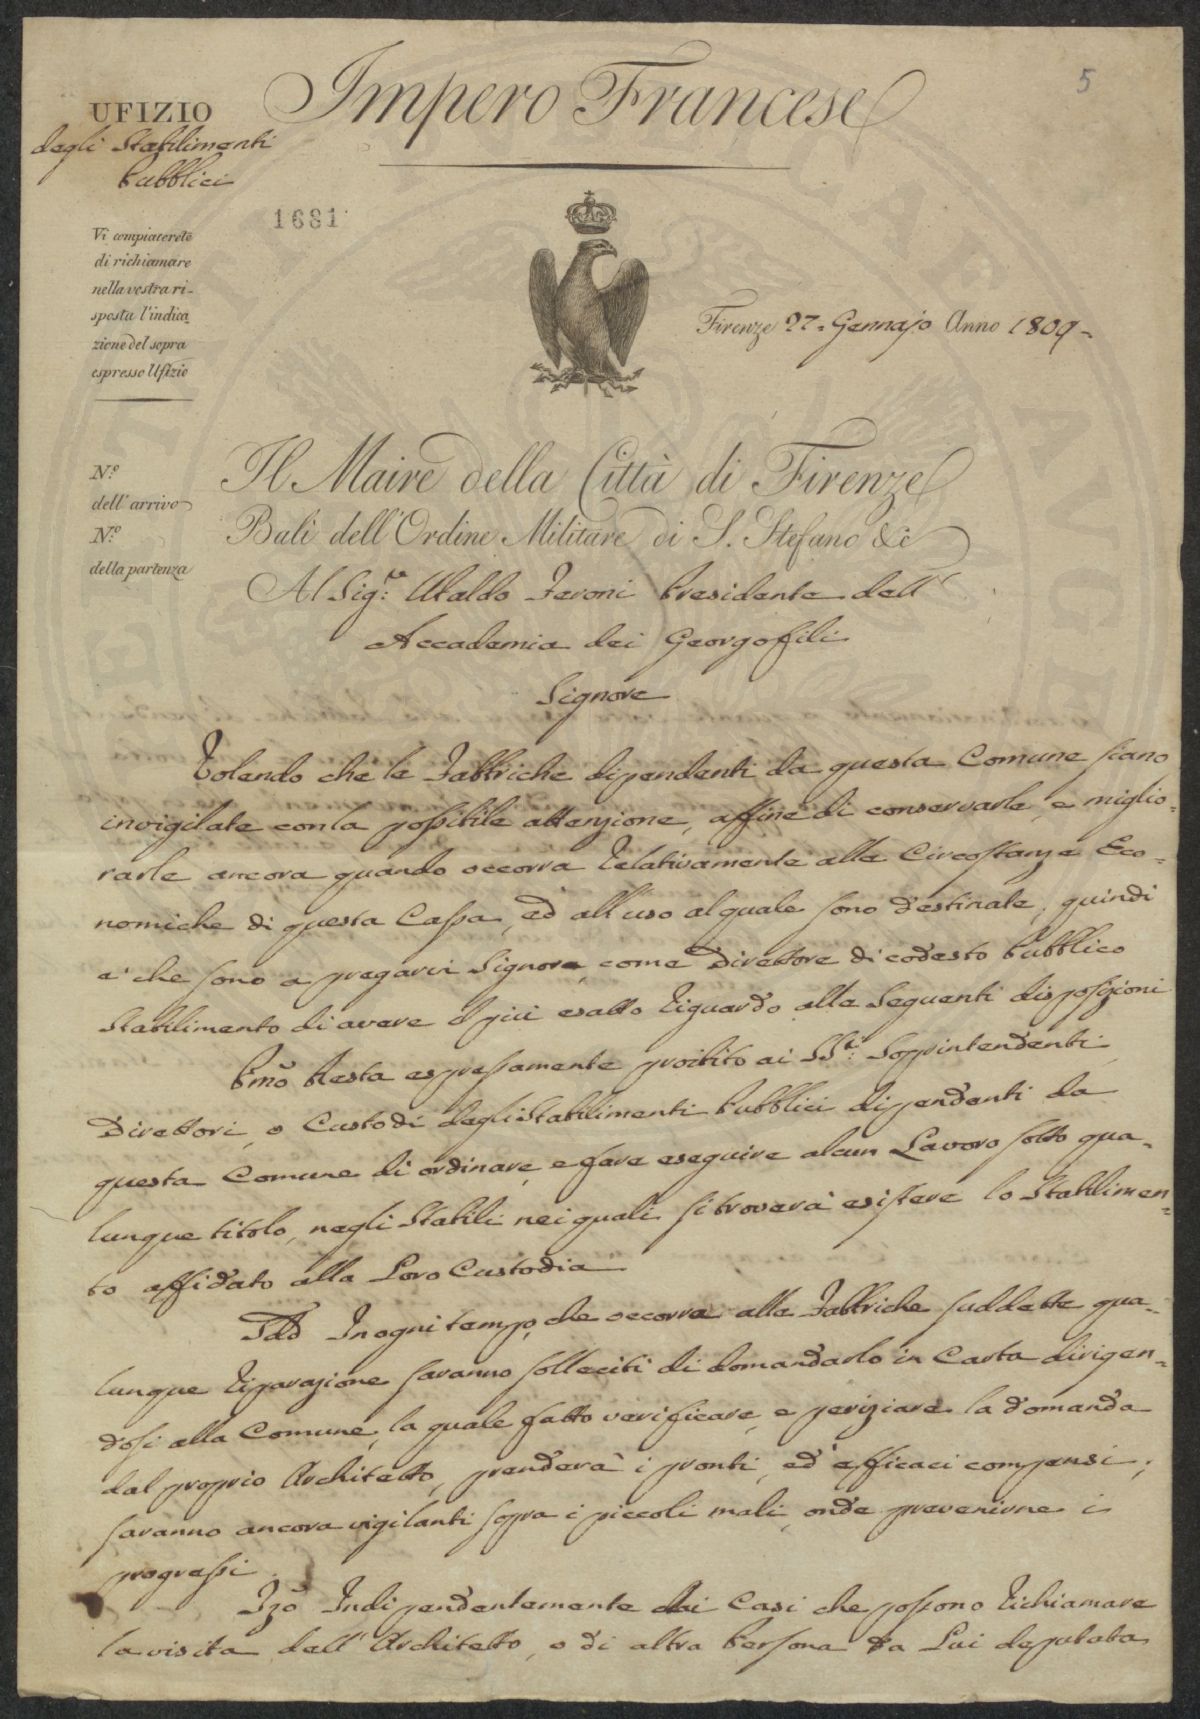 5
Impero Francese
UFIZIO
degli Stabilimenti
Pubblici
1681
Vi compiacerete
di richiamare
nella vostra ri-
sposta l'indica
zione del sopra
espresso Ufizio
Firenze 27. Gennajo Anno 1809.
N.º
dell'arrivo
N.º
della partenza
Il Maire della Città di Firenze
Balì dell'Ordine Militare di S. Stefano &c
Al Sig.re Ubaldo Feroni Presidente dell'
Accademia dei Georgofili
Signore
Volendo che le Fabbriche dipendenti da questa Comune siano
invigilate con la possibile attenzione, affine di conservarle, e miglio=
rarle ancora quando occorra relativamente alle Circostanze Eco=
nomiche di questa Cassa, ed all'uso al quale sono destinate, quindi
è che sono a pregarvi Signore come Direttore di codesto Pubblico
Stabilimento di avere il più esatto riguardo alle seguenti disposizioni
Pmo Resta espressamente proibito ai SS.ri Soprintendenti,
Direttori, o Custodi degli Stabilimenti Pubblici dipendenti da
questa Comune di ordinare, e fare eseguire alcun Lavoro sotto qua=
lunque titolo, negli Stabili nei quali si troverà esistere lo Stabilimen=
to affidato alla Loro Custodia
Sdo In ogni tempo, che occorra alle Fabbriche suddette qua=
lunque riparazione saranno solleciti di domandarlo in Carta dirigen=
dosi alla Comune, la quale fatto verificare, e periziare la domanda
dal proprio Architetto, prenderà i pronti, ed efficaci compensi;
saranno ancora vigilanti sopra i piccoli mali, onde prevenirne i
progressi.
Tzo Indipendentemente dai Casi che possono richiamare
la visita dell'Architetto, o di altra Persona da Lui deputata